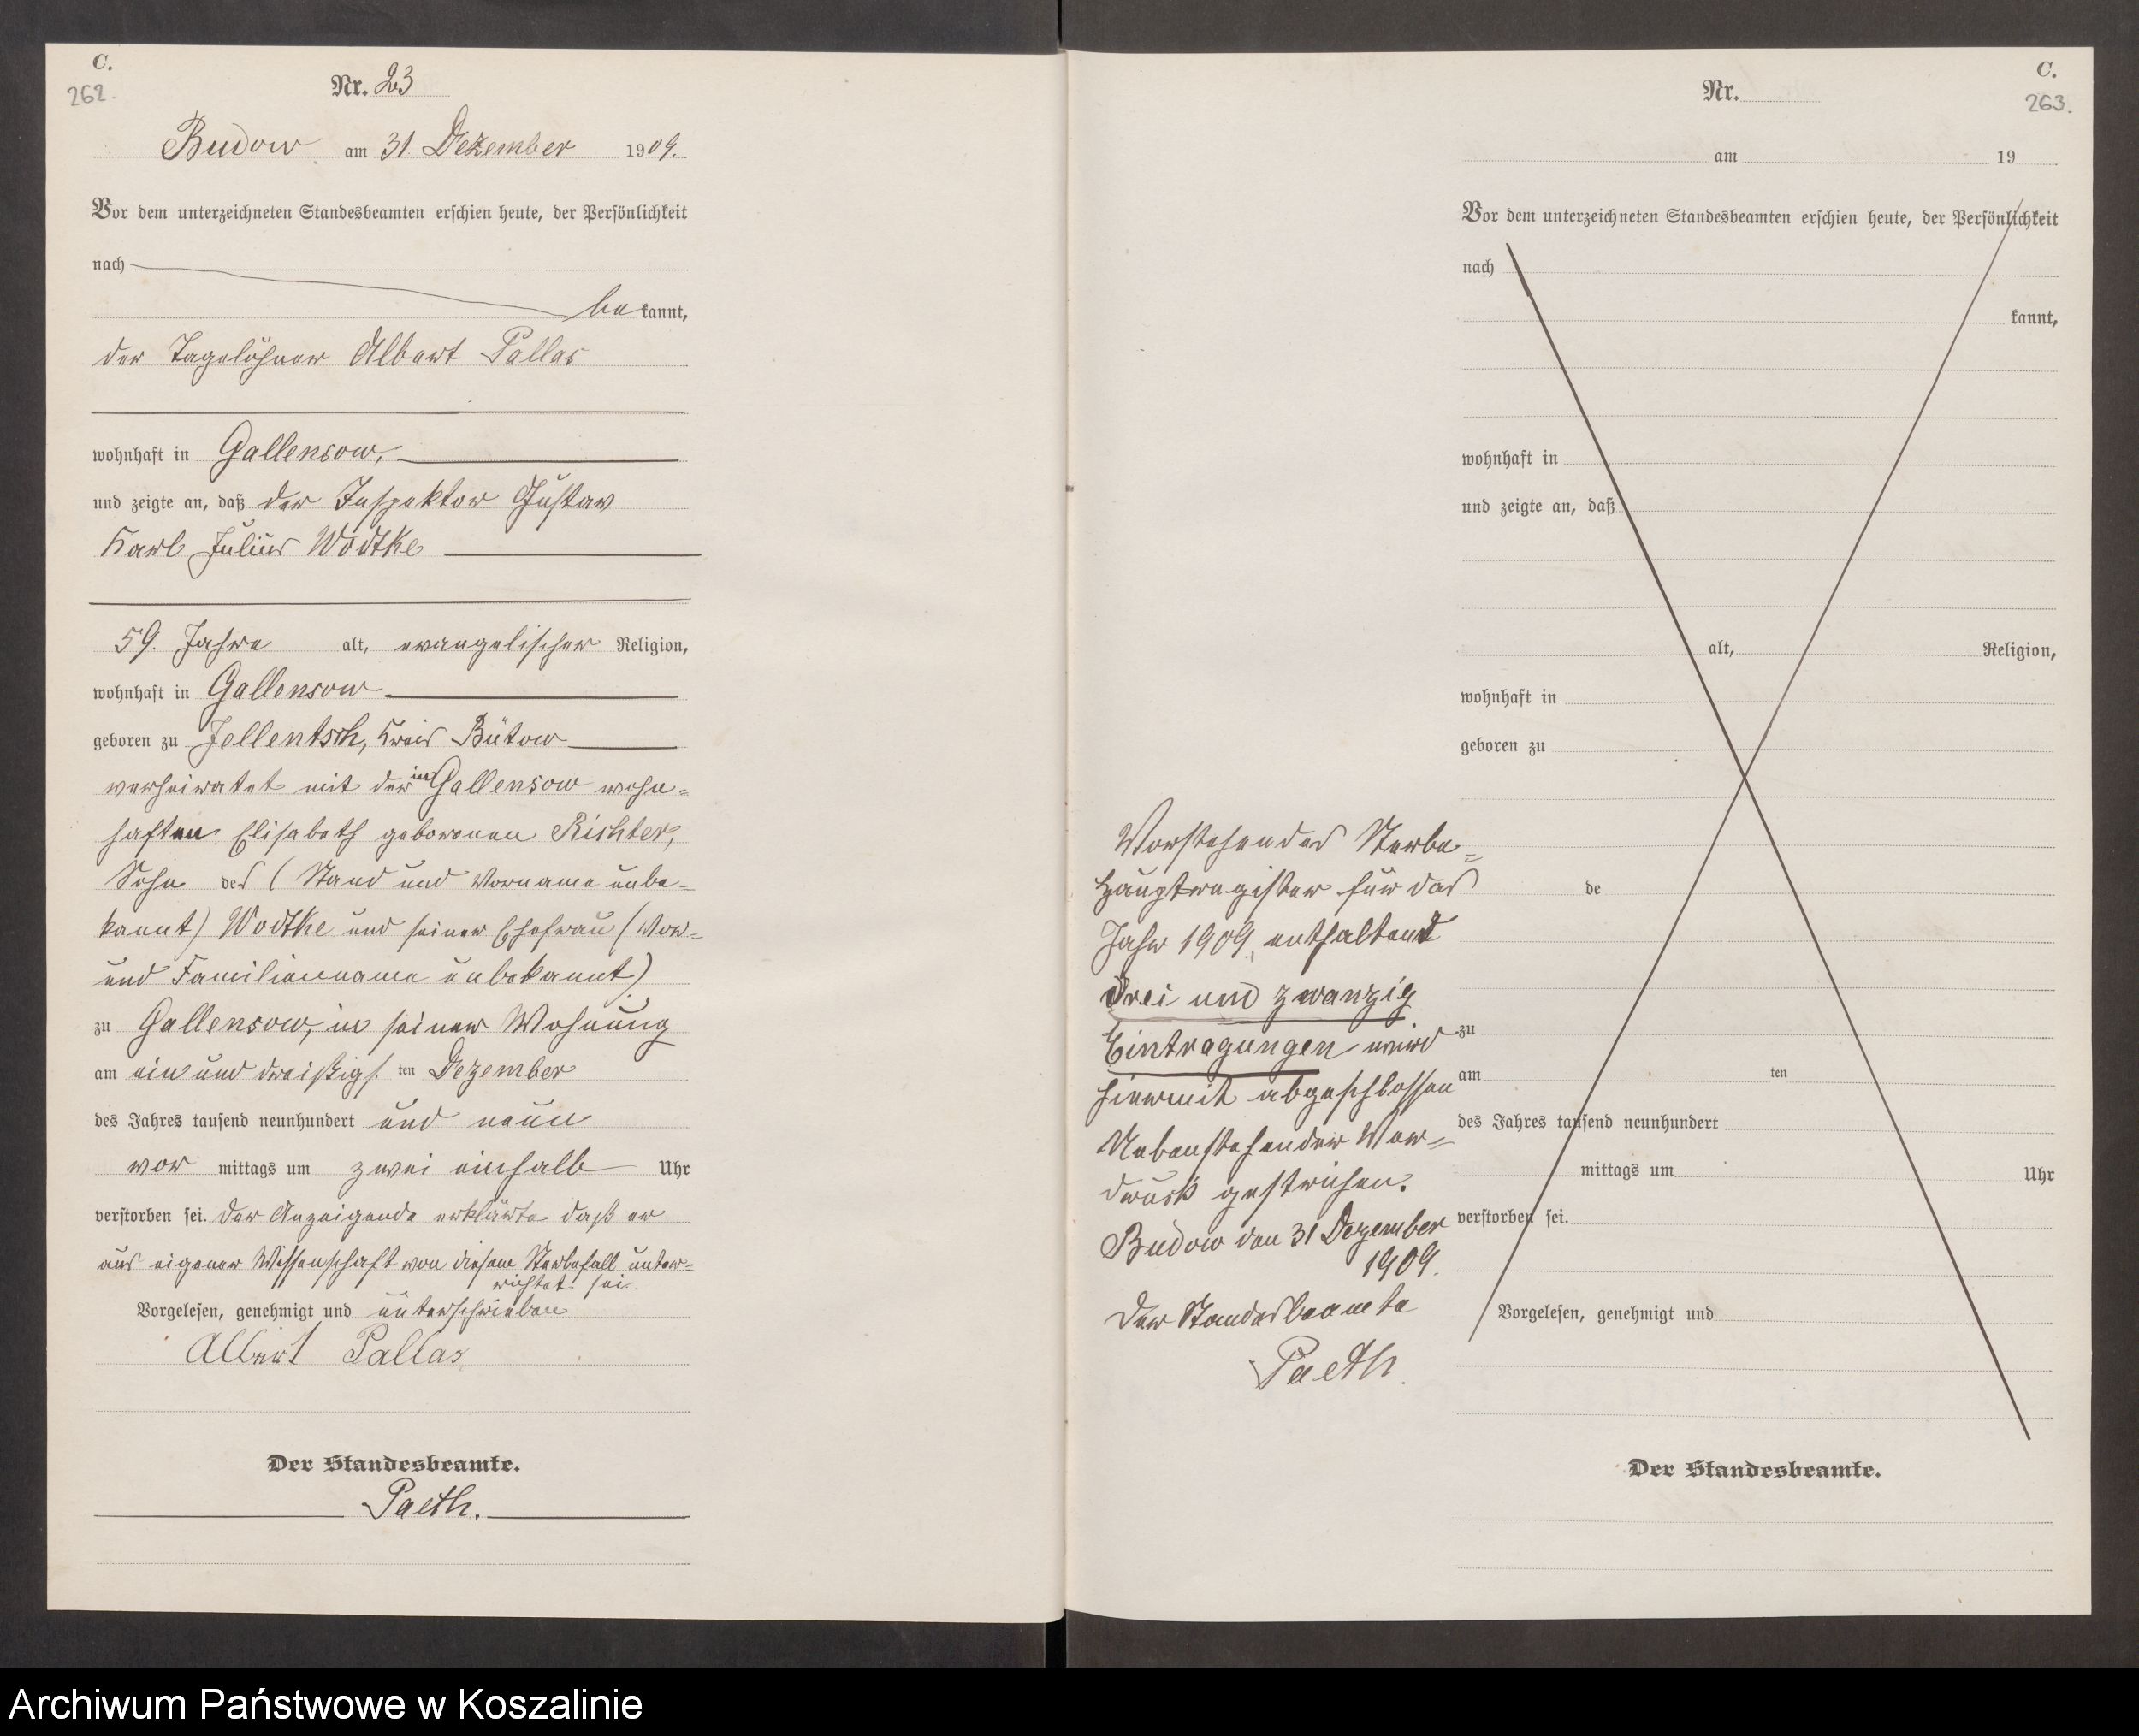 C.
262.
Nr. 23
Budow am 31. Dezember 1909.
Vor dem unterzeichneten Standesbeamten erschien heute, der Persönlichkeit
nach
be kannt,
der Tagelöhner Albert Pallas
wohnhaft in Gallensow,
und zeigte an, daß der Inspektor Gustav
Karl Julius Wodtke
59. Jahre alt, evangelischer Religion,
wohnhaft in Gallensow
geboren zu Jellentsch, Kreis Bütow
verheiratet mit der in Gallensow wohn=
haften Elisabeth geborenen Richter,
Sohn des (Stand und Vorname unbe=
kannt) Wodtke und seiner Ehefrau (Vor=
und Familienname unbekannt)
zu Gallensow, in seiner Wohnung
am ein und dreißigs ten Dezember
des Jahres tausend neunhundert und neun
vor mittags um zwei einhalb Uhr
verstorben sei. Der Anzeigende erklärte, daß er
aus eigener Wissenschaft von diesem Sterbefall unter=
richtet sei.
Vorgelesen, genehmigt und unterschrieben
Albert Pallas
Der Standesbeamte.
Paeth.
C.
263.
Nr.
am 19
Vor dem unterzeichneten Standesbeamten erschien heute, der Persönlichkeit
nach
kannt,
wohnhaft in
und zeigte an, daß
alt, Religion,
wohnhaft in
geboren zu
de
zu
am ten
des Jahres tausend neunhundert
mittags um Uhr
verstorben sei.
Vorgelesen, genehmigt und
Der Standesbeamte.
Vorstehendes Sterbe=
Hauptregister für das
Jahr 1909, enthaltend
drei und zwanzig
Eintragungen wird
hiermit abgeschlossen
Nebenstehender Vor=
druck gestrichen.
Budow den 31 Dezember
1909.
Der Standesbeamte
Paeth.
Archiwum Państwowe w Koszalinie